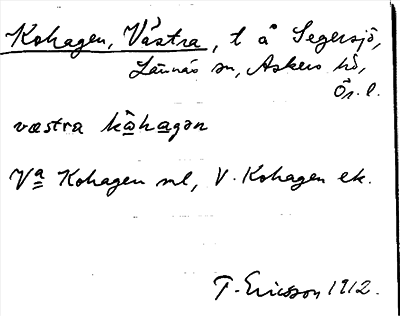 Kohagen, Västra, t å Segersjö,
Lännäs sn, Askers hd,
Ör. l.
væstra kòhagən
Va Kohagen ml, V. Kohagen ek.
T. Ericsson 1912.